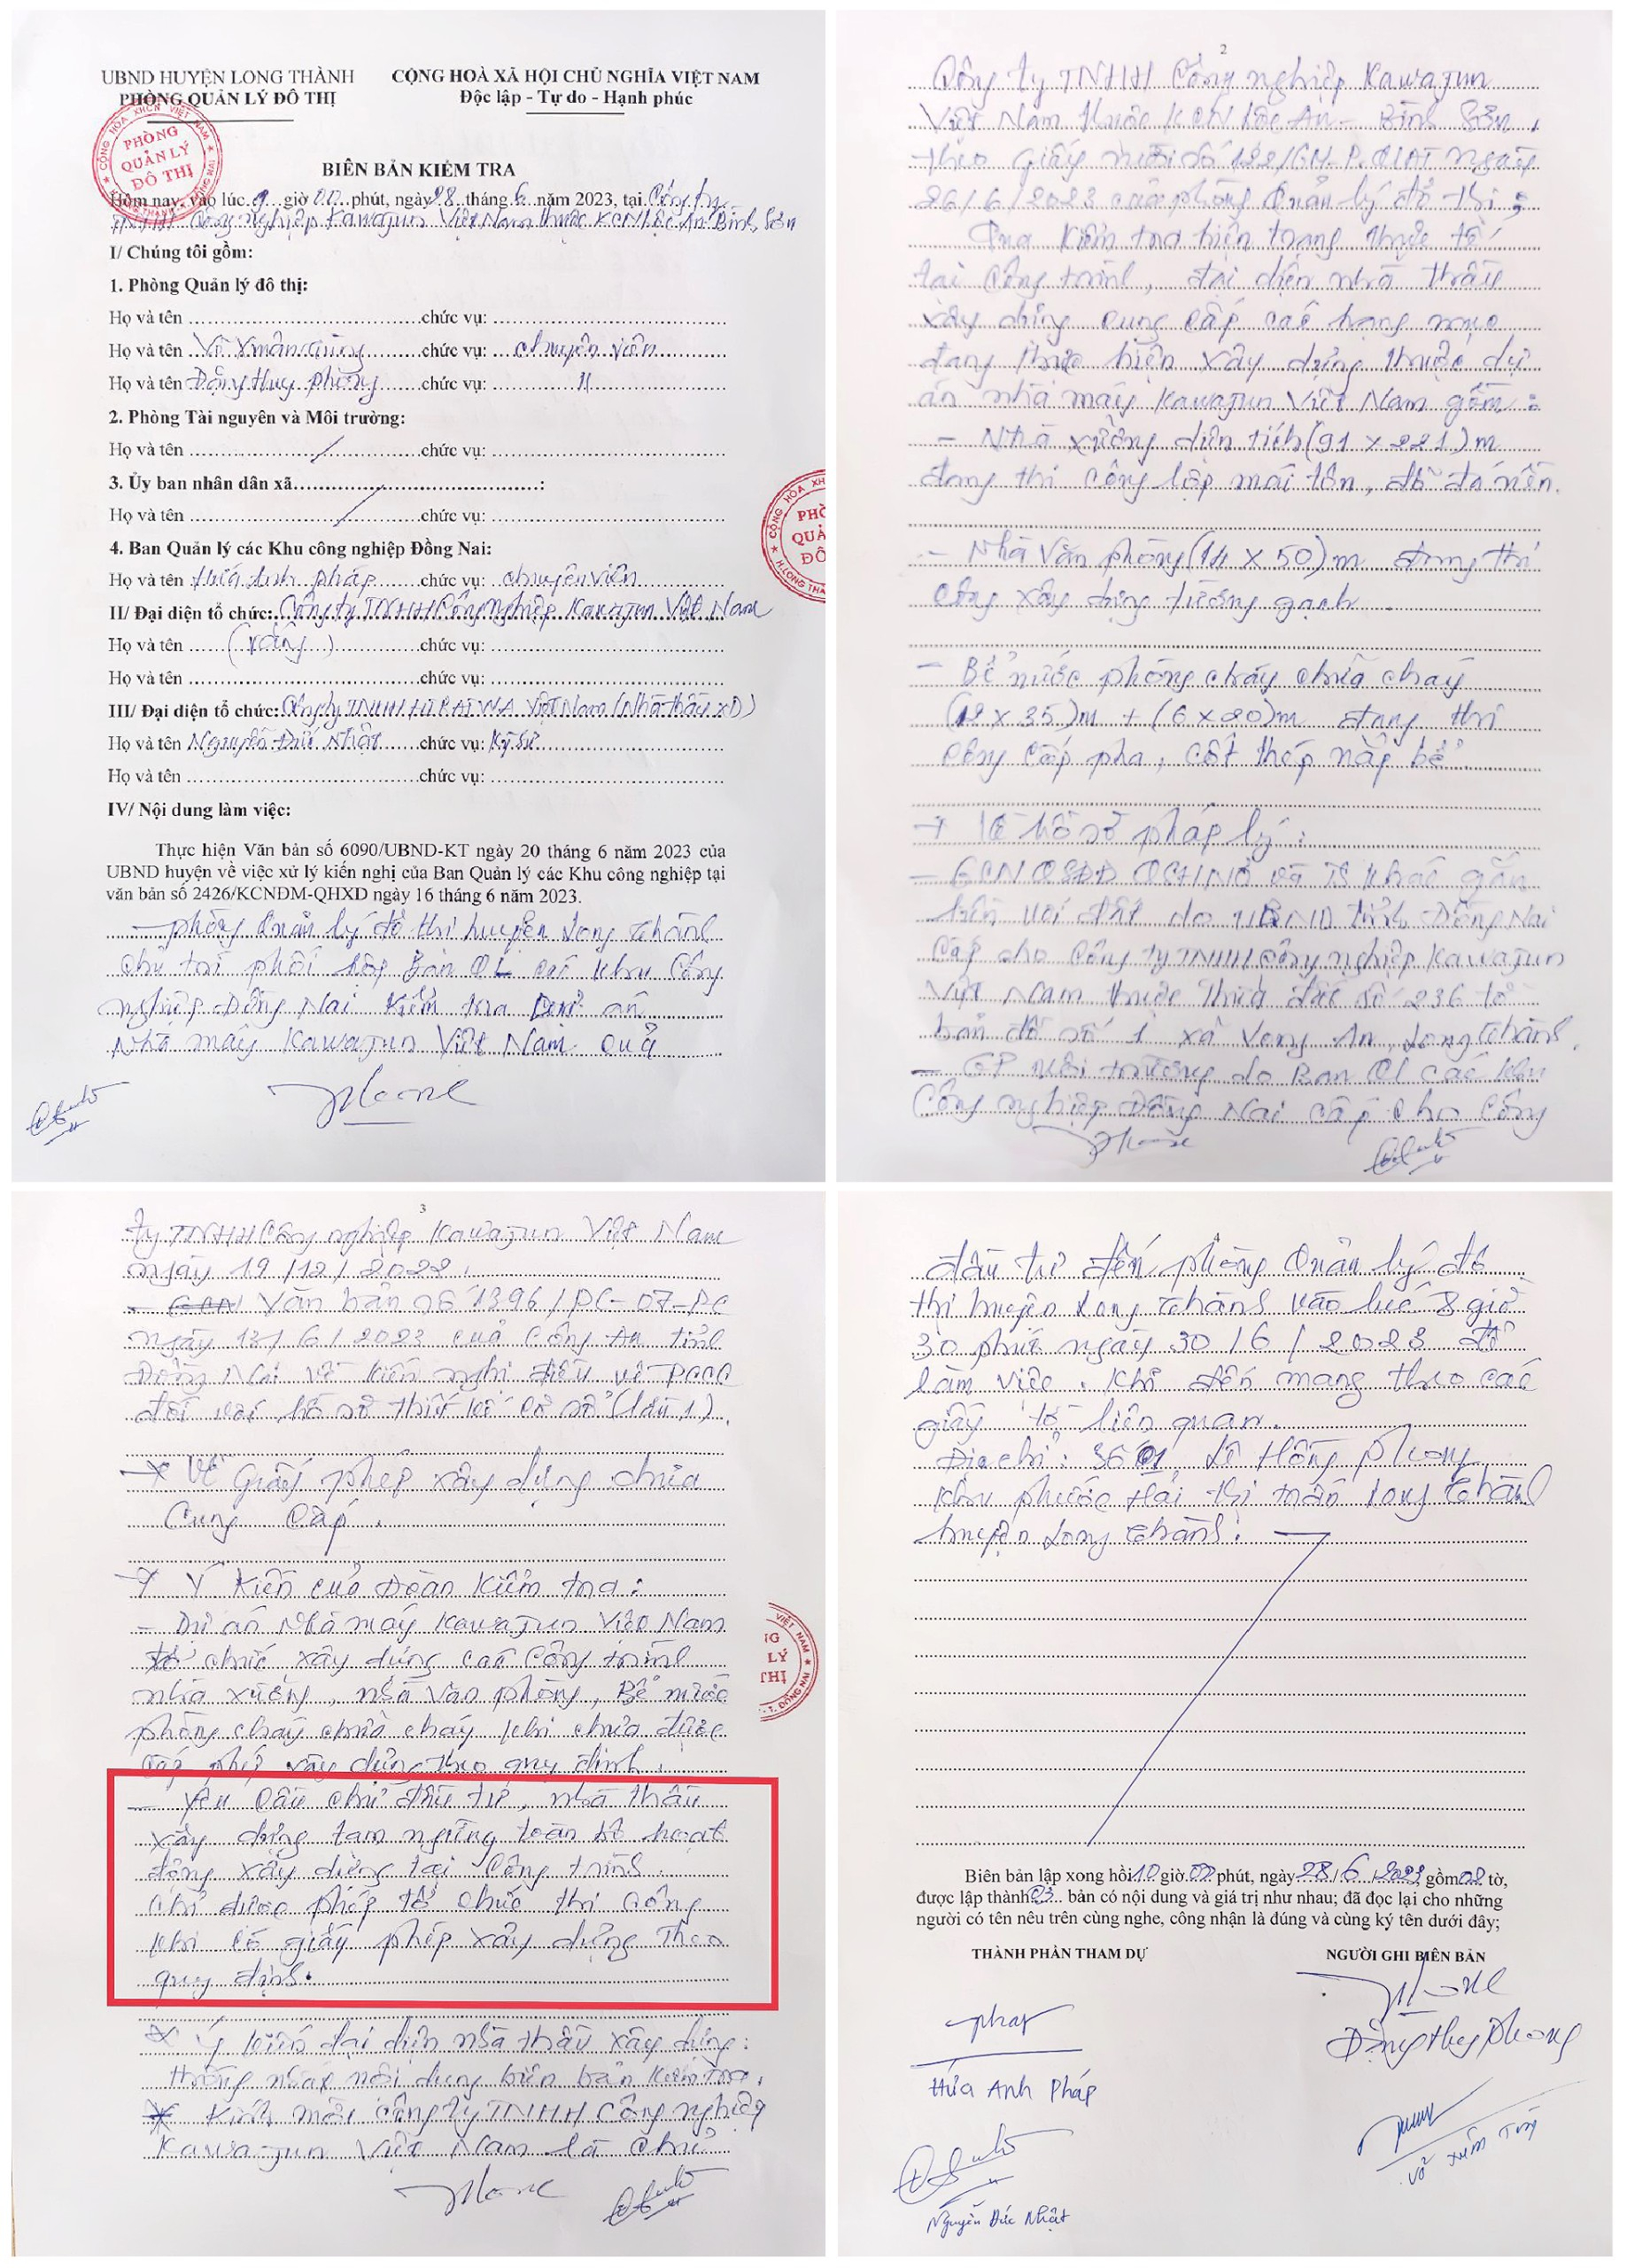 UBND HUYỆN LONG THÀNH
PHÒNG QUẢN LÝ ĐÔ THỊ
CỘNG HOÀ XÃ HỘI CHỦ NGHĨA VIỆT NAM
Độc lập - Tự do - Hạnh phúc
PHÒNG QUẢN LÝ ĐÔ THỊ
BIÊN BẢN KIỂM TRA
Hôm nay, vào lúc 9 giờ 00 phút, ngày 28 tháng 6 năm 2023, tại Công ty
TNHH Công nghiệp Kawajun Việt Nam thuộc KCN Lộc An Bình Sơn
I/ Chúng tôi gồm:
1. Phòng Quản lý đô thị:
Họ và tên ........ chức vụ: ........
Họ và tên Võ Xuân Tùng chức vụ: chuyên viên
Họ và tên Đặng Huy Phong chức vụ: 11
2. Phòng Tài nguyên và Môi trường:
Họ và tên ........ chức vụ: ........
3. Ủy ban nhân dân xã........:
Họ và tên ........ chức vụ: ........
4. Ban Quản lý các Khu công nghiệp Đồng Nai:
Họ và tên Hứa Anh Pháp chức vụ: chuyên viên
II/ Đại diện tổ chức: Công ty TNHH Công nghiệp Kawajun Việt Nam
Họ và tên (vắng) chức vụ: ........
Họ và tên ........ chức vụ: ........
III/ Đại diện tổ chức: Công ty TNHH HIRAIWA Việt Nam (Nhà thầu XD)
Họ và tên Nguyễn Đức Nhật chức vụ: Kỹ sư
Họ và tên ........ chức vụ: ........
IV/ Nội dung làm việc:
Thực hiện Văn bản số 6090/UBND-KT ngày 20 tháng 6 năm 2023 của
UBND huyện về việc xử lý kiến nghị của Ban Quản lý các Khu công nghiệp tại
văn bản số 2426/KCNĐM-QHXD ngày 16 tháng 6 năm 2023.
- Phòng Quản lý đô thị huyện Long Thành
chủ trì phối hợp Ban QL các khu công
nghiệp Đồng Nai kiểm tra Dự án
Nhà máy Kawajun Việt Nam của
2
Công ty TNHH Công nghiệp Kawajun
Việt Nam thuộc KCN Lộc An - Bình Sơn,
theo giấy mời số 122/GM-P.QLĐT ngày
26/6/2023 của phòng Quản lý đô thị;
Qua kiểm tra hiện trạng thực tế
tại công trình, đại diện nhà thầu
xây dựng cung cấp các hạng mục
đang thực hiện xây dựng thuộc dự
án nhà máy Kawajun Việt Nam gồm:
- Nhà xưởng diện tích (91 x 221)m
đang thi công lợp mái tôn, đổ đá nền.
- Nhà văn phòng (14 x 50)m đang thi
công xây dựng tường gạch.
- Bể nước phòng cháy chữa cháy
(12 x 35)m + (6 x 20)m đang thi
công cốp pha, cốt thép nắp bể.
+ Về hồ sơ pháp lý:
- GCN QSDĐ QSHNỞ và TS khác gắn
liền với đất do UBND tỉnh Đồng Nai
cấp cho Công ty TNHH Công nghiệp Kawajun
Việt Nam thuộc thửa đất số 236 tờ
bản đồ số 1 xã Long An, Long Thành.
- GP môi trường do Ban QL các khu
công nghiệp Đồng Nai cấp cho Công
3
ty TNHH Công nghiệp Kawajun Việt Nam
ngày 19/12/2022.
- Văn bản số 1396/PC-07-PC
ngày 12/6/2023 của Công An tỉnh
Đồng Nai về kiến nghị điều về PCCC
đối với hồ sơ thiết kế cơ sở (lần 1).
* Về Giấy phép xây dựng chưa
cung cấp.
+ Ý kiến của Đoàn kiểm tra:
- Dự án Nhà máy Kawajun Việt Nam
tổ chức xây dựng các công trình
nhà xưởng, nhà văn phòng, Bể nước
phòng cháy chữa cháy khi chưa được
cấp phép xây dựng theo quy định.
- Yêu cầu chủ đầu tư, nhà thầu
xây dựng tạm ngừng toàn bộ hoạt
động xây dựng tại công trình.
Chỉ được phép tổ chức thi công
khi có giấy phép xây dựng theo
quy định.
* Ý kiến đại diện nhà thầu xây dựng:
thống nhất nội dung biên bản kiểm tra.
* Kính mời Công ty TNHH Công nghiệp
Kawajun Việt Nam là chủ
4
đầu tư đến phòng Quản lý đô
thị huyện Long Thành vào lúc 8 giờ
30 phút ngày 30/6/2023 để
làm việc. Khi đến mang theo các
giấy tờ liên quan.
Địa chỉ: Lê Hồng Phong
khu Phước Hải thị trấn Long Thành
huyện Long Thành.
Biên bản lập xong hồi 10 giờ 00 phút, ngày 28/6/2023 gồm 02 tờ,
được lập thành 03 bản có nội dung và giá trị như nhau; đã đọc lại cho những
người có tên nêu trên cùng nghe, công nhận là đúng và cùng ký tên dưới đây;
THÀNH PHẦN THAM DỰ
NGƯỜI GHI BIÊN BẢN
Đặng Huy Phong
Hứa Anh Pháp
Võ Xuân Tùng
Nguyễn Đức Nhật